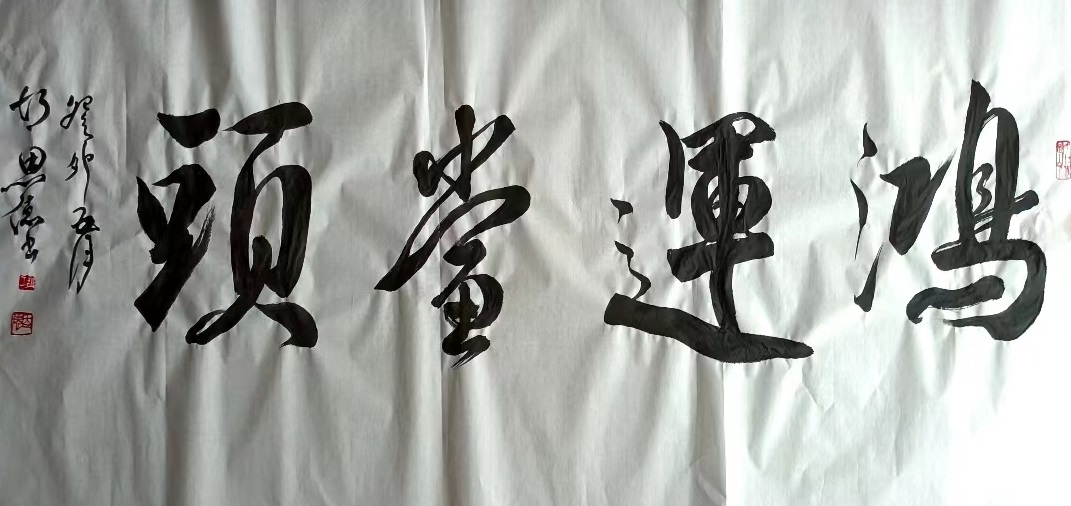 鴻運當頭
癸卯五月
胡思意書